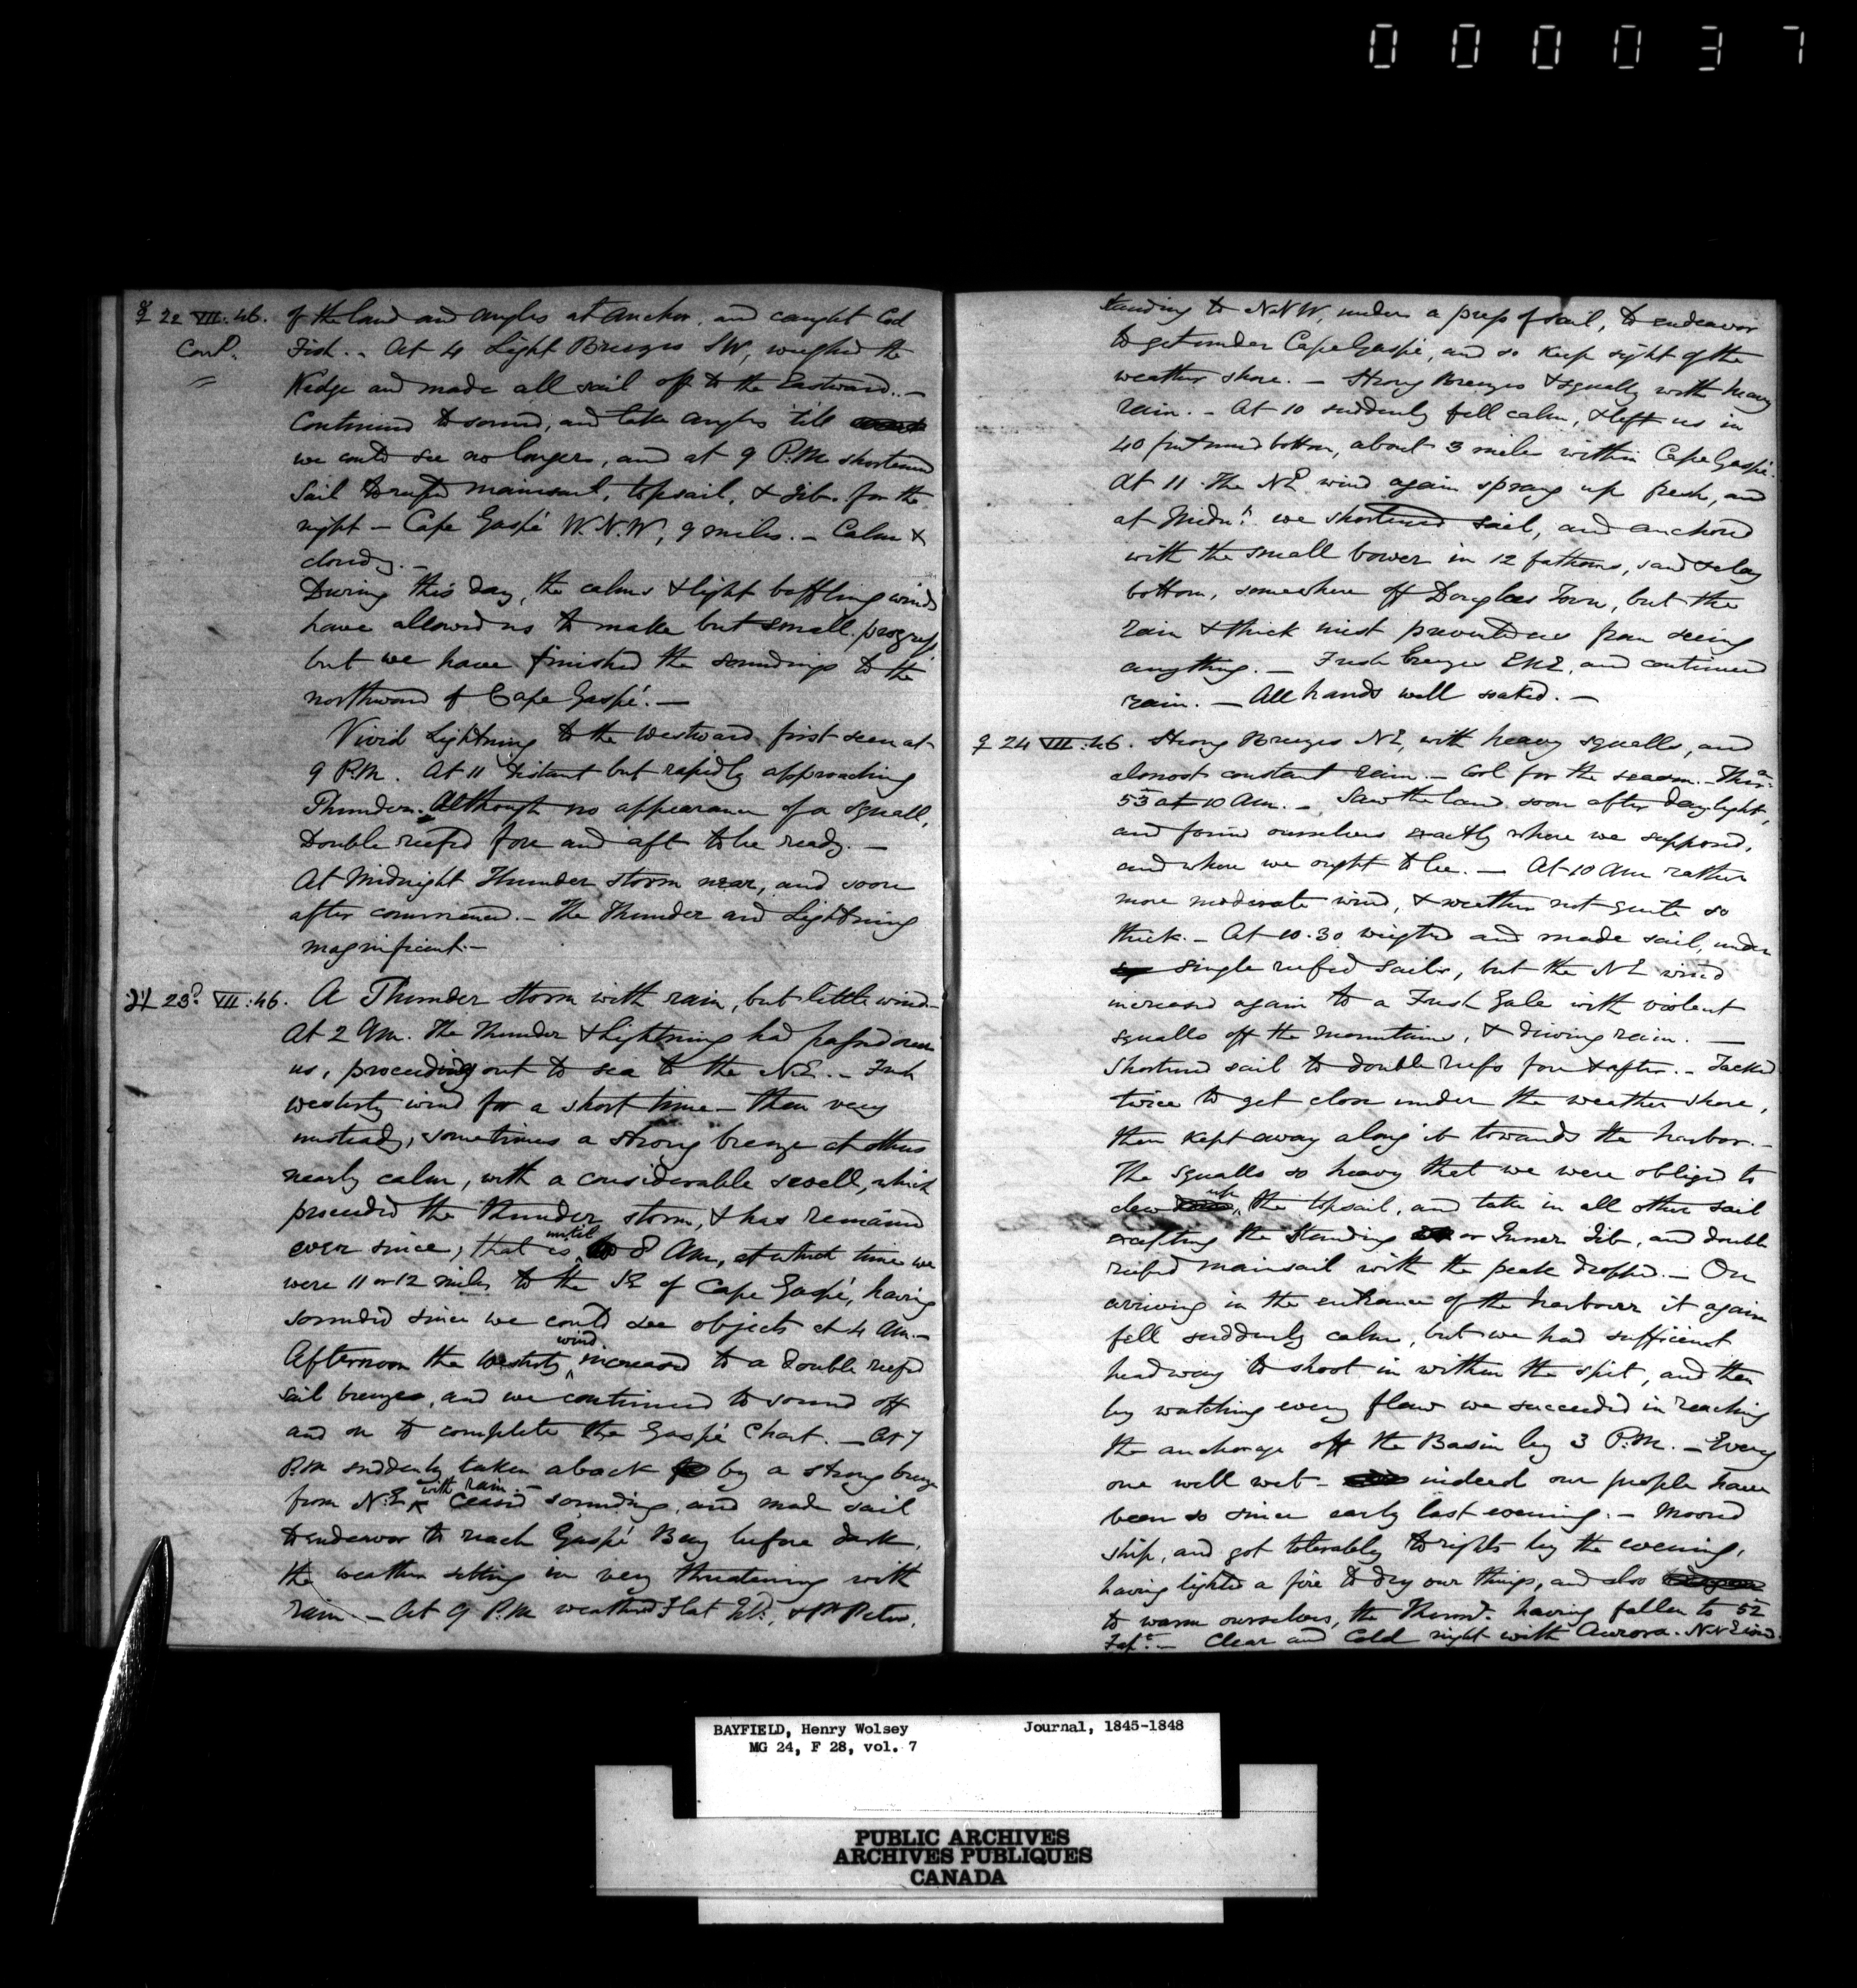 000037
☿ 22 VII:46. of the land and angles at anchor, and caught Cod
Cont.d Fish. - At 4 Light Breezes SW, weighed the
Kedge and made all sail off to the Eastward. -
Continued to sound, and take angles till
we could see no longer, and at 9 P.M. shortened
Sail to reefd mainsail, topsail, & Jib. for the
night - Cape Gaspé W.N.W, 9 miles. - Calm &
cloudy. -
During this day, the calms & light baffling winds
have allowed us to make but small progress
but we have finished the soundings to the
northward of Cape Gaspé. -
Vivid Lightning to the Westward first seen at
9 P.M. At 11 distant but rapidly approaching
Thunder. Although no appearance of a squall,
Double reefed fore and aft to be ready. -
At Midnight Thunder storm near, and soon
after commenced. - The Thunder and Lightning
magnificent. -
♃ 23d VII:46. A Thunder storm with rain, but little wind -
At 2 AM. The Thunder & Lightning had passed over
us, proceeding out to sea to the NE. - Fresh
westerly wind for a short time - then very
unsteady, sometimes a strong breeze at others
nearly calm, with a considerable swell, which
preceeded the thunder storm, & has remained
ever since; that is until 8 AM, at which time we
were 11 or 12 miles to the SE of Cape Gaspé, having
sounded since we could see objects at 4 AM. -
Afternoon the Westerly wind increased to a double reefed
sail breeze, and we continued to sound off
and on to complete the Gaspé Chart. - At 7
P.M suddenly taken aback by a strong breeze
from N.E with rain. - Ceased sounding, and made sail
to endeavor to reach Gaspé Bay before dark,
the weather setting in very threatening with
rain. - At 9 P.M weathered Flat Id., & Pt Peter,
standing to NNW, under a press of sail, to endeavor
to get under Cape Gaspé, and so keep sight of the
weather shore. - Strong Breezes & squally with heavy
rain. - At 10 suddenly fell calm, & left us in
40 fms mud bottom, about 3 miles within Cape Gaspé.
At 11 The NE wind again sprang up fresh, and
at Midnt. we shortened sail, and anchored
with the small bower in 12 fathoms, sand & clay
bottom, somewhere off Douglas Town, but the
rain & thick mist prevented us from seeing
anything. - Fresh breezes ENE, and continued
rain. - All hands well soaked. -
♀ 24 VII:46. Strong Breezes NE, with heavy squalls, and
almost constant rain. - Cool for the season. - Ther.
53 at 10 AM. - Saw the land soon after daylight,
and found ourselves exactly where we supposed,
and where we ought to be. - At 10 AM rather
more moderate wind, & weather not quite so
thick. - At 10.30 weighed and made sail, under
single reefed sails, but the NE wind
increased again to a Fresh Gale with violent
squalls off the mountains, & driving rain. -
Shortened sail to double reefs fore & after. - Tacked
twice to get close under the weather shore,
then kept away along it towards the harbor. -
The squalls so heavy that we were obliged to
clew up the topsail, and take in all other sail
excepting the Standing or Inner Jib, and double
reefed mainsail with the peak dropped. - On
arriving in the entrance of the harbour it again
fell suddenly calm, but we had sufficient
headway to shoot in within the spit, and then
by watching every flaw we succeeded in reaching
the anchorage off the Basin by 3 P.M. - Every
one well wet - indeed our people have
been so since early last evening. - Moored
ship, and got tolerably to rights by the evening,
having lighted a fire to dry our things, and also
to warm ourselves, the Thermr. having fallen to 52
Clear and Cold night with Aurora. NNE wind.
BAYFIELD, Henry Wolsey Journal, 1845-1848
MG 24, F 28, vol. 7
PUBLIC ARCHIVES
ARCHIVES PUBLIQUES
CANADA